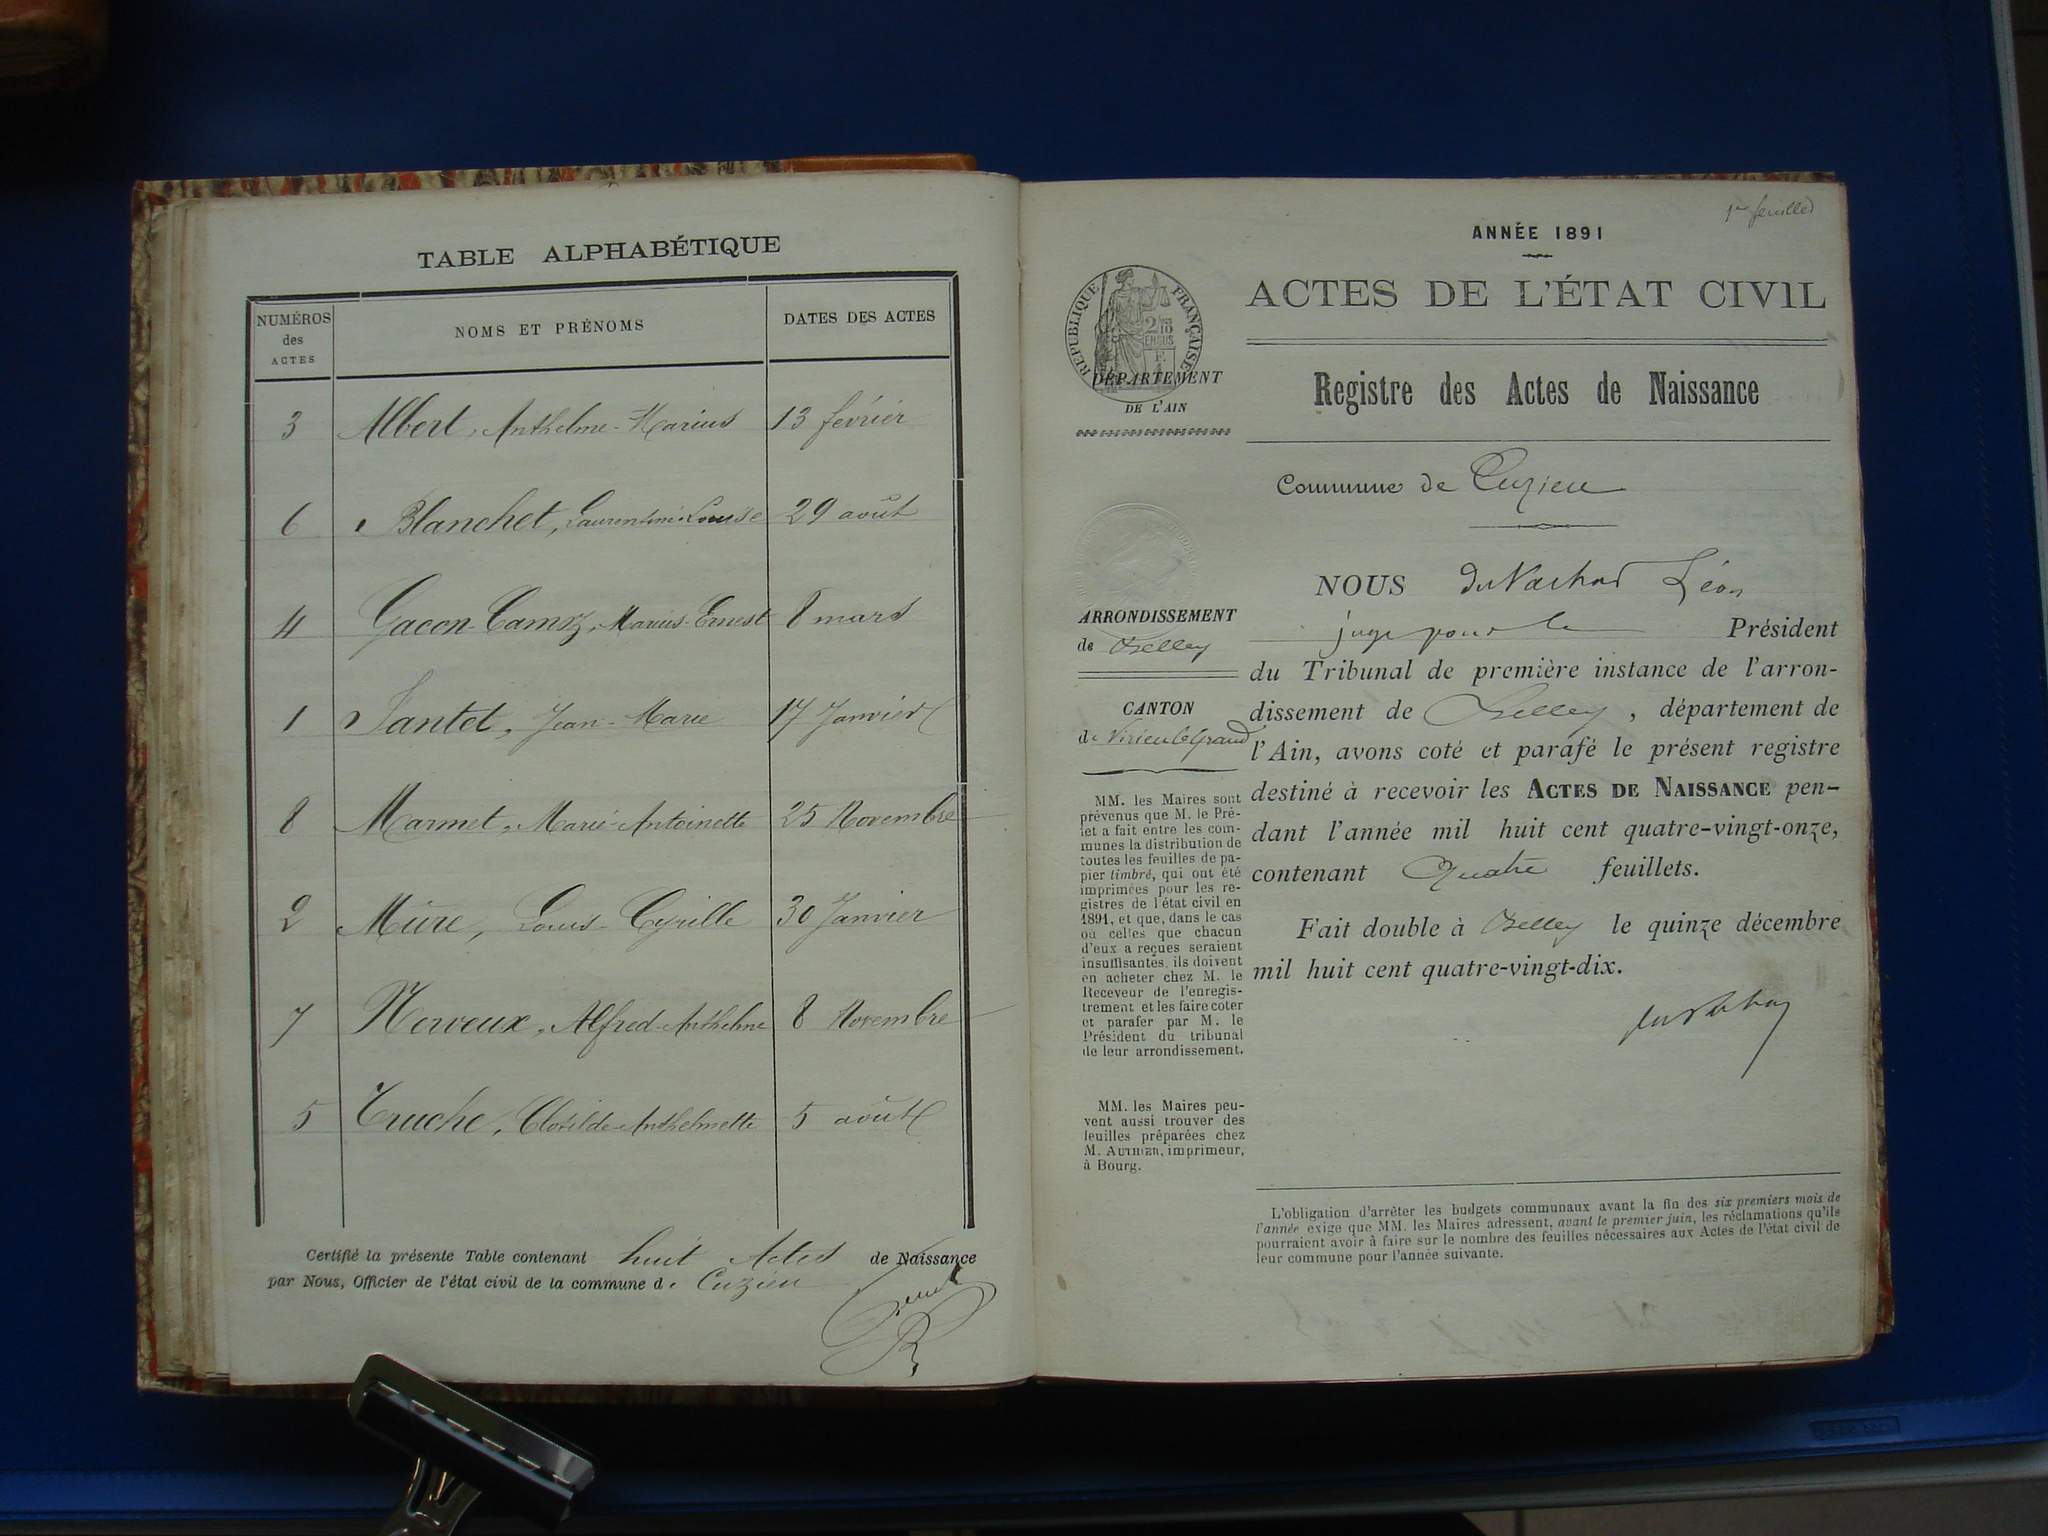 TABLE ALPHABÉTIQUE
NUMÉROS des ACTES
NOMS ET PRÉNOMS
DATES DES ACTES
3 Albert, Anthelme-Marius 13 février
6 Blanchet, Laurentine-Louise 29 août
4 Gacon-Camoz, Marius-Ernest 8 mars
1 Jantet, Jean-Marie 17 Janvier
8 Marmet, Marie-Antoinette 25 Novembre
2 Mûre, Louis-Cyrille 30 Janvier
7 Nerveux, Alfred-Anthelme 8 Novembre
5 Truche, Clotilde-Anthelmette 5 août
Certifié la présente Table contenant huit Actes de Naissance
par Nous, Officier de l'état civil de la commune de Cuzieu
1er feuillet
ANNÉE 1891
ACTES DE L'ÉTAT CIVIL
RÉPUBLIQUE FRANÇAISE
2/10
EN SUS
DÉPARTEMENT
DE L'AIN
Registre des Actes de Naissance
Commune de Cuzieu
NOUS Léon
juge pour le Président
du Tribunal de première instance de l'arron-
dissement de Belley, département de
l'Ain, avons coté et parafé le présent registre
destiné à recevoir les ACTES DE NAISSANCE pen-
dant l'année mil huit cent quatre-vingt-onze,
contenant Quatre feuillets.
Fait double à Belley le quinze décembre
mil huit cent quatre-vingt-dix.
ARRONDISSEMENT
de Belley
CANTON
de Virieu le Grand
MM. les Maires sont
prévenus que M. le Pré-
fet a fait entre les com-
munes la distribution de
toutes les feuilles de pa-
pier timbré, qui ont été
imprimées pour les re-
gistres de l'état civil en
1891, et que, dans le cas
où celles que chacun
d'eux a reçues seraient
insuffisantes, ils doivent
en acheter chez M. le
Receveur de l'enregis-
trement et les faire coter
et parafer par M. le
Président du tribunal
de leur arrondissement.
MM. les Maires peu-
vent aussi trouver des
feuilles préparées chez
M. AUTHIER, imprimeur,
à Bourg.
L'obligation d'arrêter les budgets communaux avant la fin des six premiers mois de
l'année exige que MM. les Maires adressent, avant le premier juin, les réclamations qu'ils
pourraient avoir à faire sur le nombre des feuilles nécessaires aux Actes de l'état civil de
leur commune pour l'année suivante.